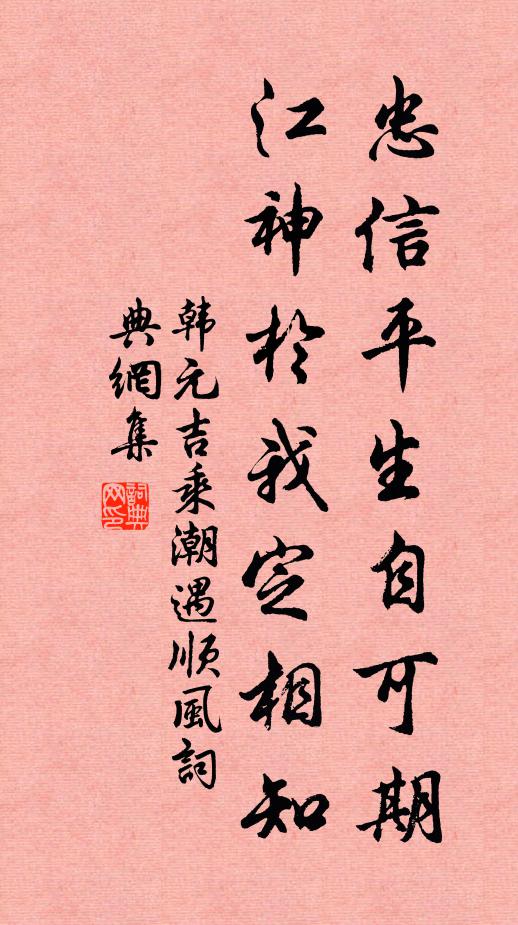 忠信平生自可期
江神於我定相知
韩元吉乘潮遇顺風詞
典網集
詞典网印